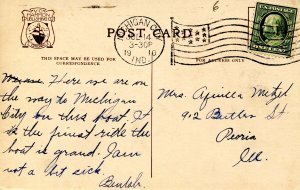 6
POST CARD
THIS SPACE MAY BE USED FOR
CORRESPONDENCE.
FOR ADDRESS ONLY
MICHIGAN CITY
14
3-30P
1910
IND.
Here we are on
the way to Michigan
City on this boat. It
is the finest ride the
boat is grand. Iam
not a bit sick.
Beulah.
Mrs. Aquilla
912 Butler St
Peoria
Ill.